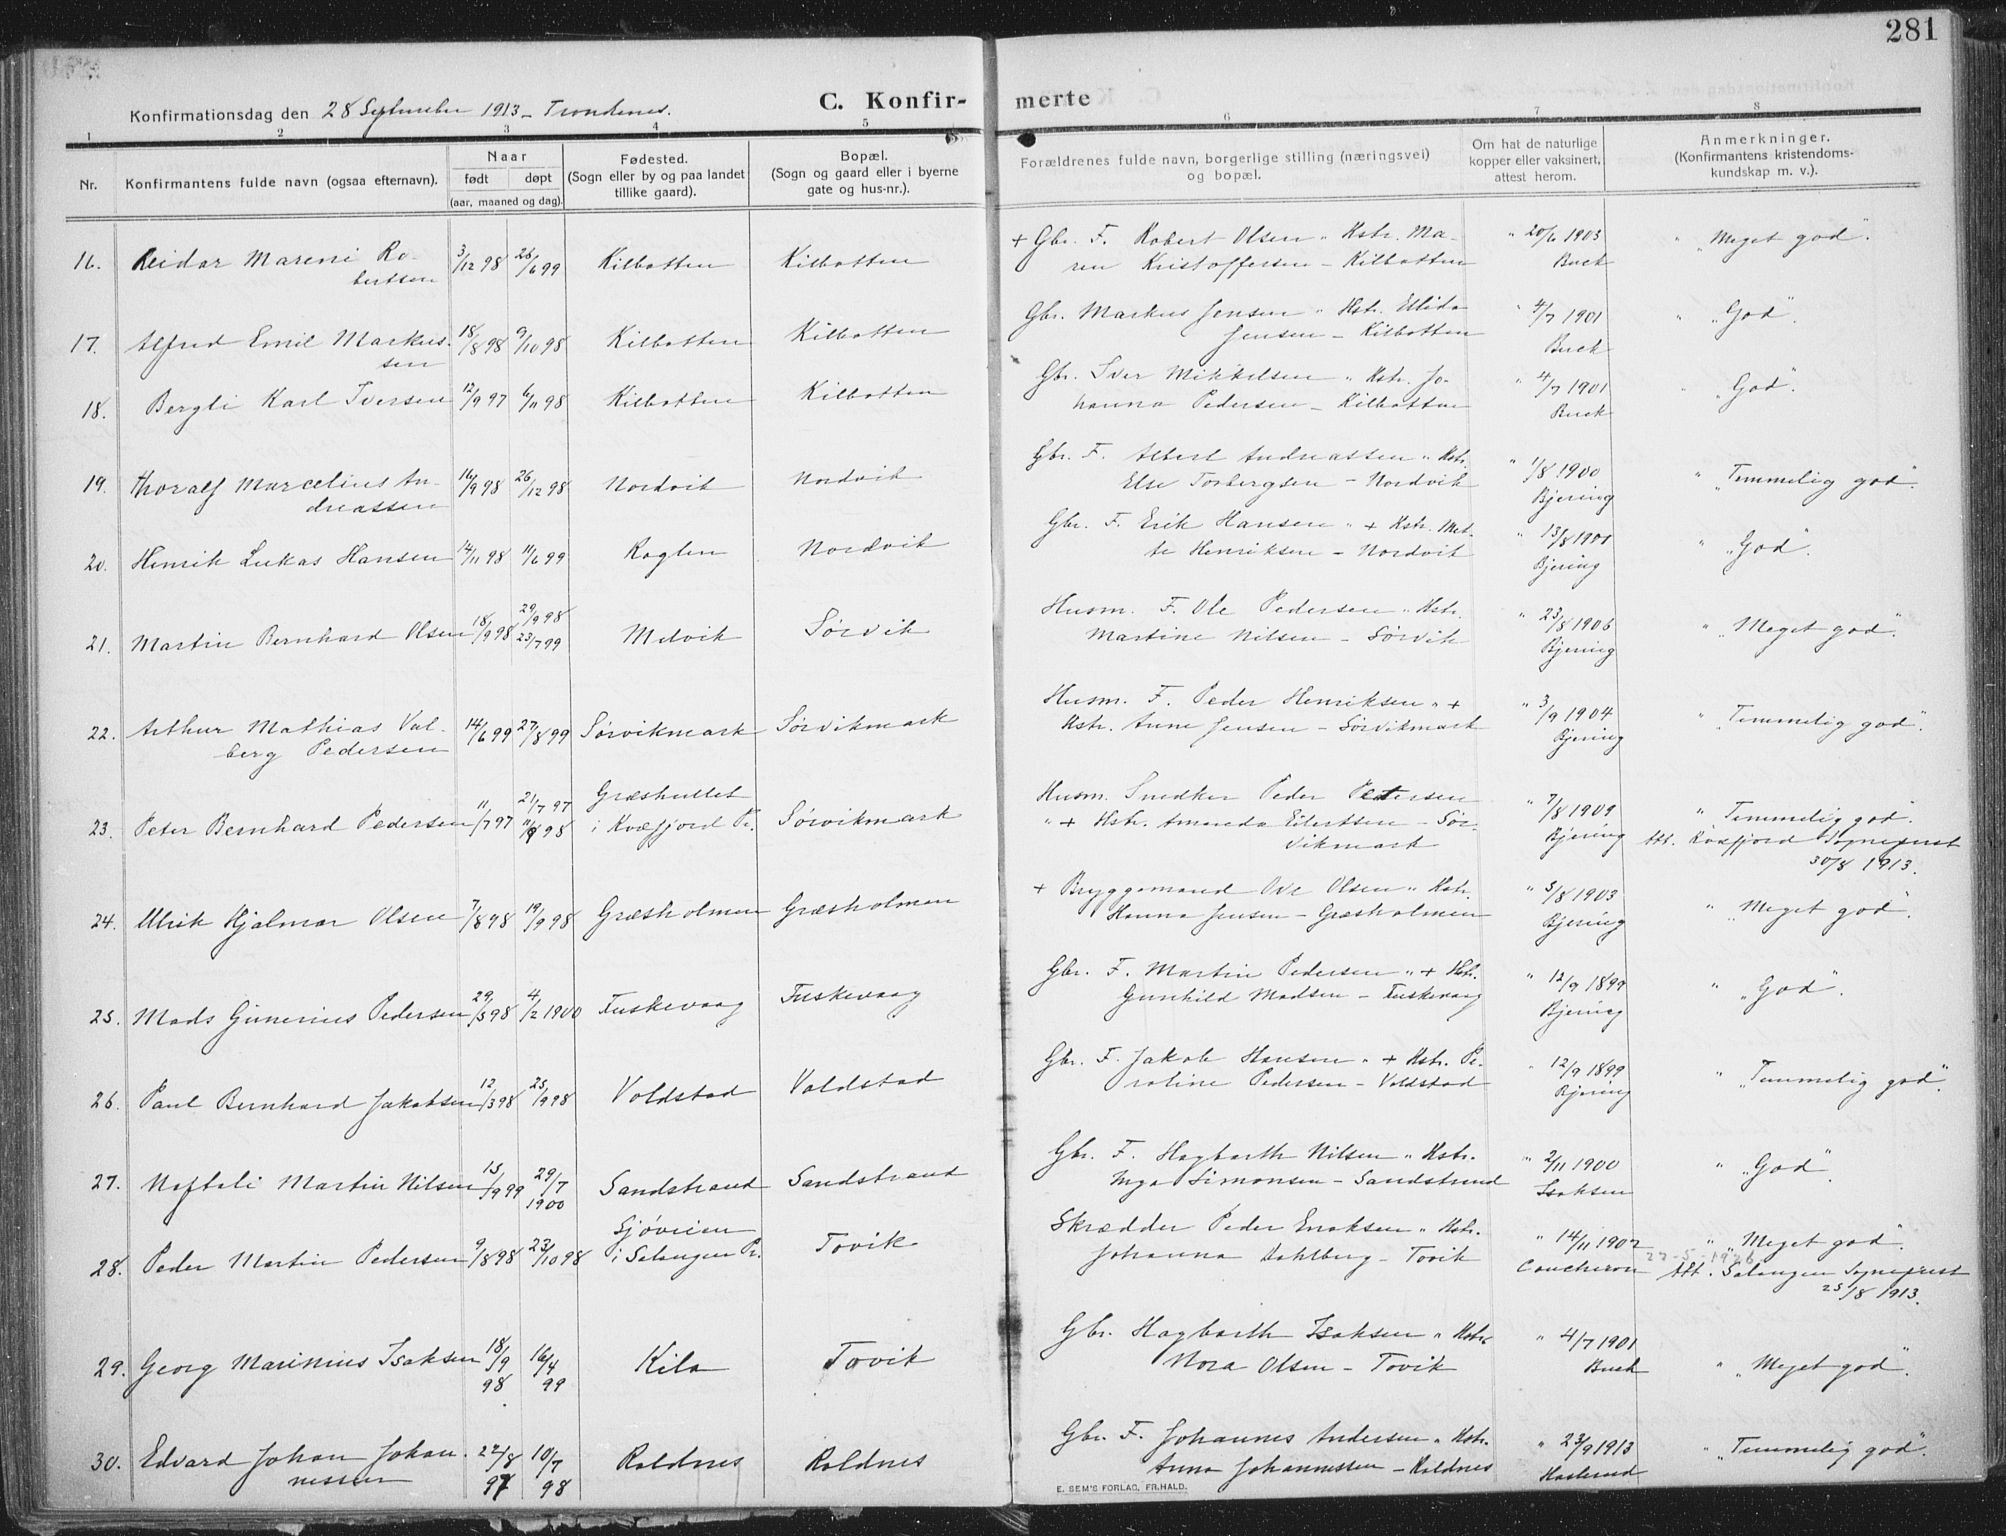 281
Konfirmationsdag den 28 September 1913 - Trondenes.
C. Konfir- merte
1 2 3 4 5 6 7 8
Nr.
Konfirmantens fulde navn (ogsaa efternavn).
Naar
født døpt
(aar, maaned og dag).
Fødested.
(Sogn eller by og paa landet
tillike gaard).
Bopæl.
(Sogn og gaard eller i byerne
gate og hus-nr.).
Forældrenes fulde navn, borgerlige stilling (næringsvei)
og bopæl.
Om hat de naturlige
kopper eller vaksinert,
attest herom.
Anmerkninger.
(Konfirmantens kristendoms-
kundskap m. v.).
16. Reidar Mareni Ro- 3/12 98 26/6 99 Kilbotten Kilbotten + Gbr. F. Robert Olsen " Hstr. Ma- " 20/6 1903 " "Meget god".
bertsen ren Kristoffersen - Kilbotten Buck
17. Alfred Emil Markus- 18/8 98 9/10 98 Kilbotten Kilbotten Gbr. Markus Jensen " Hstr. Ellida " 4/7 1901 " "God".
sen Jensen - Kilbotten Buck
18. Bergli Karl Iversen 12/9 97 6/11 98 Kilbotten Kilbotten Gbr. Iver Mikkelsen " Hstr. Jo- " 4/7 1901 " "God".
hanna Pedersen - Kilbotten Buck
19. Thoralf Marcelius An- 16/9 98 26/12 98 Nordvik Nordvik Gbr. F. Albert Andreassen " Hstr. " 1/8 1900 " "Temmelig god".
dreassen Else Torbergsen - Nordvik Bjering
20. Henrik Lukas Hansen 14/11 98 11/6 99 Roglen Nordvik Gbr. F. Erik Hansen " + Hstr. Met- " 13/8 1901 " "God".
te Henriksen - Nordvik Bjering
21. Martin Bernhard Olsen 18/9 98 29/9 98 23/7 99 Melvik Sørvik Husm. F. Ole Pedersen " Hstr. " 23/8 1906 " "Meget god".
Martine Nilsen - Sørvik Bjering
22. Arthur Mathias Val- 14/6 99 27/8 99 Sørvikmark Sørvikmark Husm. F. Peder Henriksen " + " 3/9 1904 " "Temmelig god".
berg Pedersen Hstr. Anne Jensen - Sørvikmark Bjering
23. Peter Bernhard Pedersen 11/7 97 21/7 97 11/9 98 Græshullet Sørvikmark Husm. Snedker Peder Petersen " 7/8 1909 " Temmelig god".
i Kvæfjord Pr. " + Hstr. Amanda Eilertsen - Sør- Bjering Att. Kvæfjord Sogneprest
vikmark 30/8 1913.
24. Ulrik Hjalmar Olsen 7/8 98 19/9 98 Græsholmen Græsholmen + Bryggemand Ove Olsen " Hstr. " 5/8 1903 " "Meget god".
Hanna Jensen - Græsholmen Bjering
25. Mads Gunerius Pedersen 29/5 98 4/2 1900 Fuskevaag Fuskevaag Gbr. F. Martin Pedersen " + Hstr. " 12/9 1899 " "God".
Gunhild Madsen - Fuskevaag Bjering
26. Paul Bernhard Jakobsen 12/3 98 25/9 98 Voldstad Voldstad Gbr. F. Jakob Hansen " + Hstr. Pe- " 12/9 1899 " "Temmelig god".
roline Pedersen - Voldstad Bjering
27. Naftali Martin Nilsen 15/9 99 29/7 1900 Sandstrand Sandstrand Gbr. F. Hagbarth Nilsen " Hstr. " 2/11 1900 " "God".
Inga Simonsen - Sandstrand Isaksen
28. Peder Martin Pedersen 9/8 98 23/10 98 Sjøveien Tovik Skrædder Peder Enoksen " Hstr. " 14/11 1902 " "Meget god".
i Salangen Pr. Johanna Dahlberg - Tovik Coucheron 27-5-1926 Att. Salangen Sogneprest
25/8 1913.
29. Georg Marinius Isaksen 18/9 98 16/4 99 Kila Tovik Gbr. Hagbarth Isaksen " Hstr. " 4/7 1901 " "Meget god".
Nora Olsen - Tovik Buck
30. Edvard Johan Johan- 27/8 97 10/7 98 Roldnes Roldnes Gbr. F. Johannes Andersen " Hstr. " 23/9 1913 " "Temmelig god".
nessen Anna Johannessen - Roldnes
E. SEM'S FORLAG, FR.HALD.